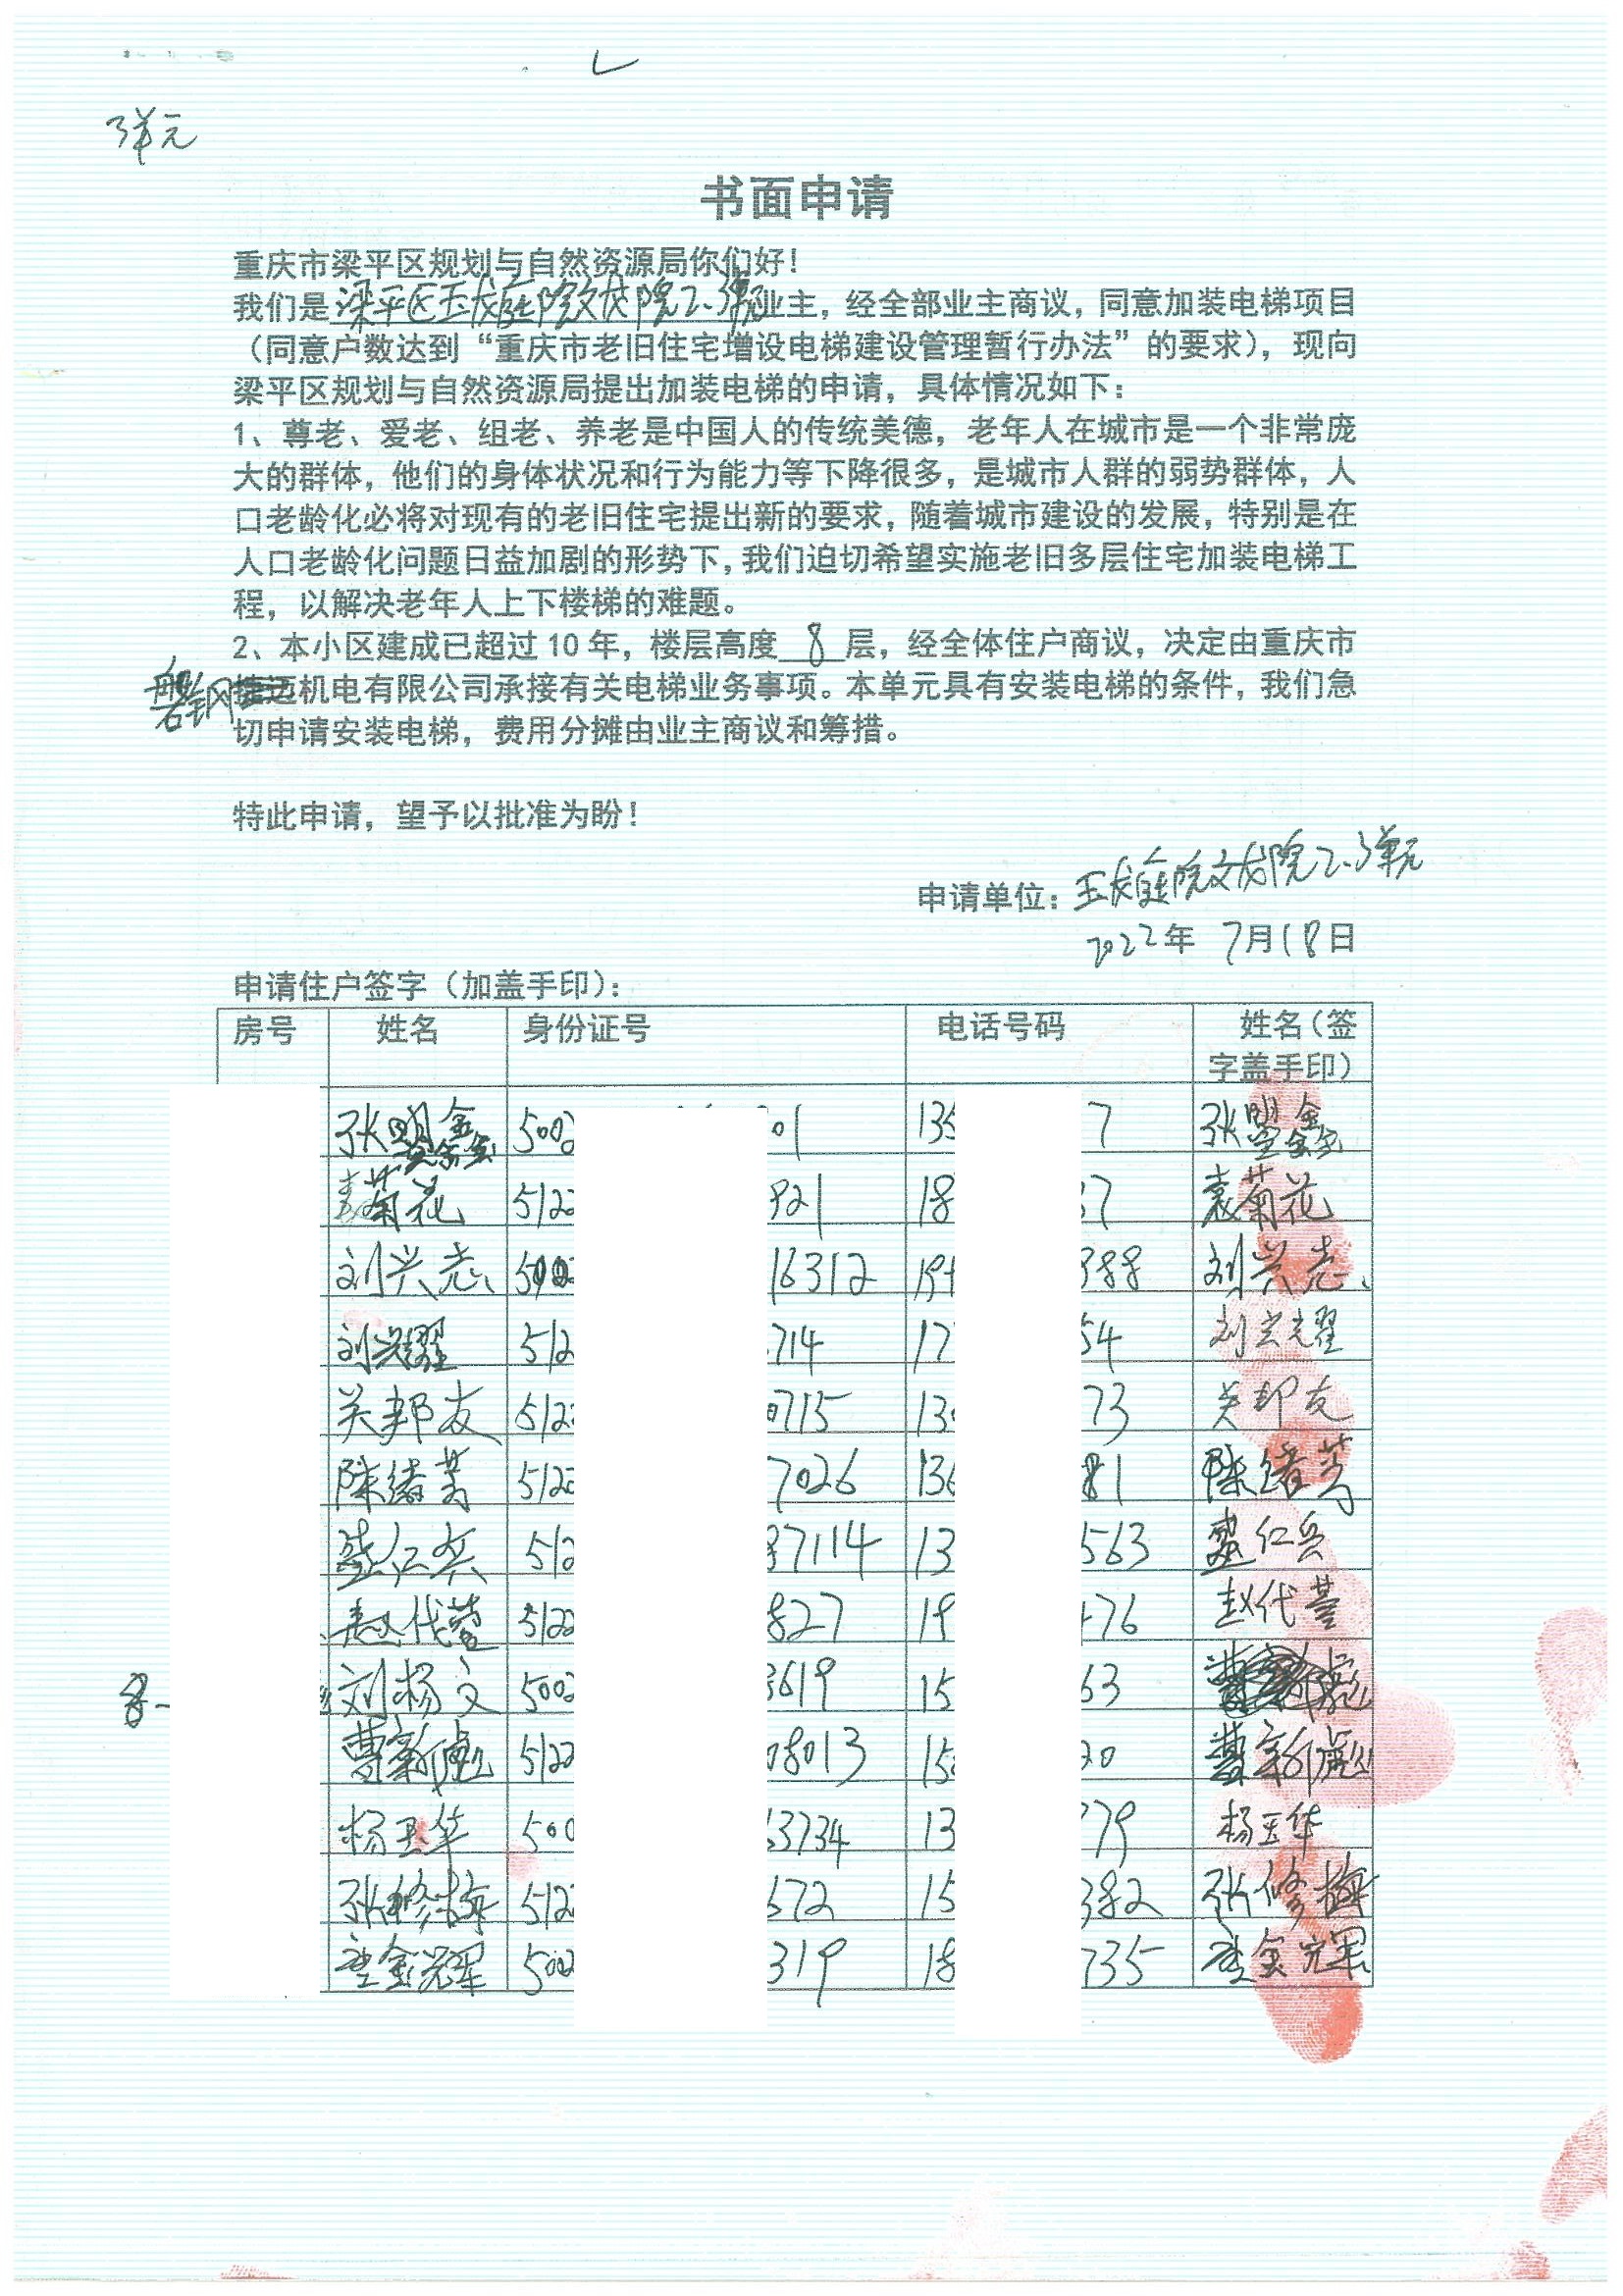 3单元
书面申请
重庆市梁平区规划与自然资源局你们好！
我们是梁平区玉龙 院文龙院2.3单元业主，经全部业主商议，同意加装电梯项目
（同意户数达到“重庆市老旧住宅增设电梯建设管理暂行办法”的要求），现向
梁平区规划与自然资源局提出加装电梯的申请，具体情况如下：
1、尊老、爱老、组老、养老是中国人的传统美德，老年人在城市是一个非常庞
大的群体，他们的身体状况和行为能力等下降很多，是城市人群的弱势群体，人
口老龄化必将对现有的老旧住宅提出新的要求，随着城市建设的发展，特别是在
人口老龄化问题日益加剧的形势下，我们迫切希望实施老旧多层住宅加装电梯工
程，以解决老年人上下楼梯的难题。
2、本小区建成已超过 10 年，楼层高度 8 层，经全体住户商议，决定由重庆市
机电有限公司承接有关电梯业务事项。本单元具有安装电梯的条件，我们急
切申请安装电梯，费用分摊由业主商议和筹措。
特此申请，望予以批准为盼！
申请单位：玉龙 院文龙院2.3单元
2022年 7月18日
申请住户签字（加盖手印）：
房号 姓名 身份证号 电话号码 姓名（签
字盖手印）
张 5002 01 135 7 张
袁菊花 5122 921 18 37 袁菊花
刘兴志 5002 16312 194 388 刘兴志
刘兴耀 512 714 17 54 刘兴耀
关邦友 5122 0715 13 73 关邦友
陈绪芳 5122 7026 136 81 陈绪芳
盛仁兵 512 87114 13 563 盛仁兵
赵代萱 5122 827 19 76 赵代萱
8-
刘杨文 5002 3619 15 63
曹新彪 5122 08013 15 20 曹新彪
杨玉华 500 3734 13 79 杨玉华
张修梅 5122 672 15 382 张修梅
金辉 5002 319 18 735 金辉